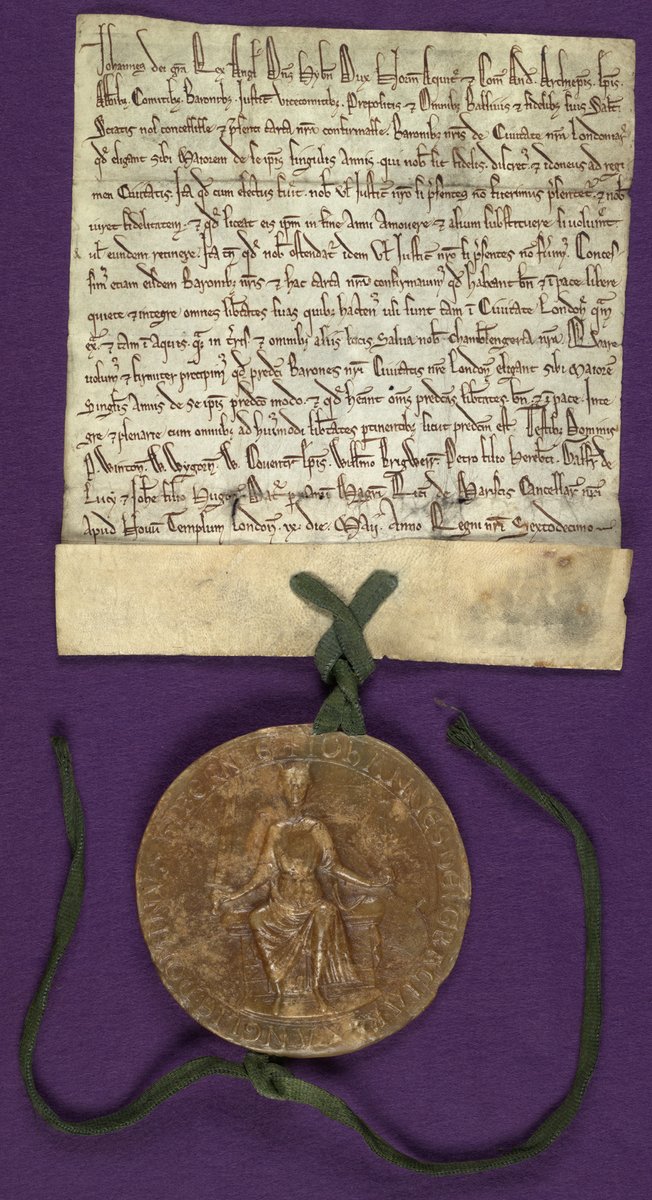 Johannes dei gra Rex Angl' Dns Hybn Dux Norm Aquit' & Com And Archiepis. Epis.
Abbibz. Comitibz. Baronibz. Justic' Vicecomitibz. Prepositis & Omnibz Ballivis & fidelibz suis Salt'.
Sciatis nos concessisse & psenti carta nra confirmasse. Baronibz nris de Civitate nra London
qd eligant sibi Maiorem de se ipis singulis Annis. qui nob' sit fidelis. discret'. & idoneus ad regi
men Civitatis. Ita qd cum electus fuit. nob' vl Justic' nro si psentes no fuerimus psentet'. & nob'
iuret fidelitatem. & qd liceat eis ipm in fine Anni amovere & alium substituere si voluint
vl eundem retinere. Ita tn qd nob' ostendat' idem vl Justic' nro si psentes no fuim'. Conces
sim' etiam eisdem Baronibz nris & hac carta nra confirmavim' qd habeant bn & i pace libere
quiete & integre omnes libtates suas quibz hacten' usi sunt tam i Civitate London qm
ex'. & tam i Aquis. qm in tris & omnibz aliis locis Salva nob' chamblengeria nra. Quare
volum' & firmiter precipim' qd predci Barones nri Civitatis nre London eligant sibi Maiore
Singlis Annis de Se ipis predco modo. & qd heant oms predcas libtates bn & i pace. Inte
gre & plenarie cum omnibz ad huimodi libtates ptinentibz sicut predcm est. Testibz Dominis
P. Winton. W. Wygorn. W. Coventr Epis. Willmo Brigwerr. Petro filio Hereb'ti. Galfr de
Lucy & Johe filio Hugon. Dat' p manum Magri Rici de Mariscis Cancellar nri
apud Novu Templum London. ix. die. Maii. Anno Regni nri Sextodecimo
IOHANNES DEI GRACIA REX ANGLIE DOMINVS HIBERNIE